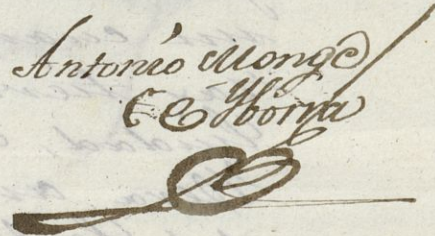 Antonio Monge
Yborra